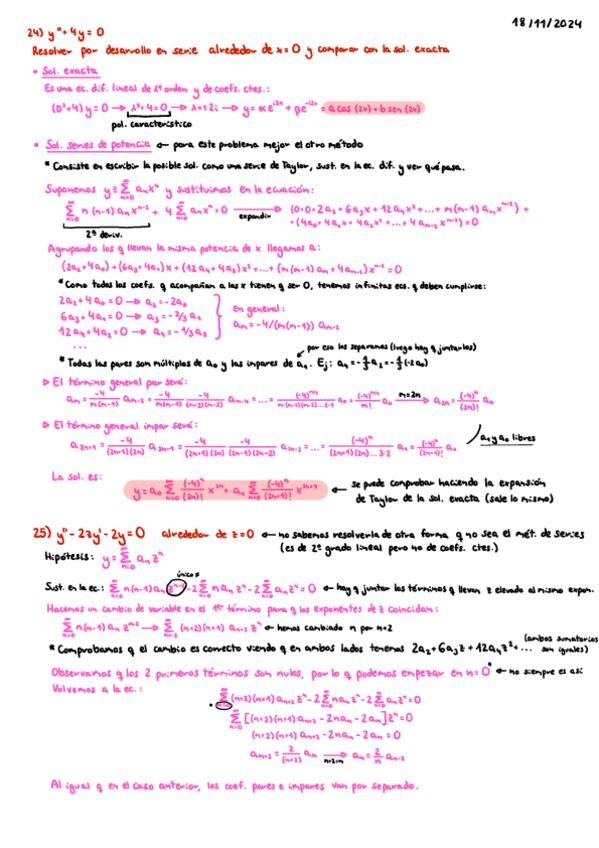 18/11/2024
24) y''+4y=0
Resolver por desarrollo en serie alrededor de x=0 y comparar con la sol. exacta
• Sol. exacta
Es una ec. dif. lineal de 2º orden y de coefs. ctes.:
(D²+4)y=0 → λ²+4=0 → λ=±2i → y=αe^{i2x}+βe^{-i2x}= a cos(2x)+b sen(2x)
pol. característico
• Sol. series de potencia ← para este problema mejor el otro método
* Consiste en escribir la posible sol. como una serie de Taylor, sust. en la ec. dif. y ver qué pasa.
Suponemos y=∑_{n=0}^∞ aₙxⁿ y sustituimos en la ecuación:
∑_{n=0}^∞ n(n-1)aₙx^{n-2} + 4∑_{n=0}^∞ aₙxⁿ=0 → expandir (0+0+2a₂+6a₃x+12a₄x²+...+m(m-1)aₘx^{m-2}) +
+(4a₀+4a₁x+4a₂x²+...+4a_{m-2}x^{m-2})=0
2ª deriv.
Agrupando los q llevan la misma potencia de x llegamos a:
(2a₂+4a₀)+(6a₃+4a₁)x+(12a₄+4a₂)x²+...+(m(m-1)aₘ+4a_{m-2})x^{m-2}=0
* Como todos los coefs. q acompañan a las x tienen q ser 0, tenemos infinitas ecs. q deben cumplirse:
2a₂+4a₀=0 → a₂=-2a₀
6a₃+4a₁=0 → a₃=-2/3a₁
12a₄+4a₂=0 → a₄=-1/3a₂
...
en general:
aₘ=-4/(m(m-1)) a_{m-2}
por eso las separamos (luego hay q juntarlas)
* Todas las pares son múltiplos de a₀ y las impares de a₁. Ej: a₄=-1/3a₂=-1/3(-2a₀)
▷ El término general par será:
aₘ=\frac{-4}{m(m-1)} a_{m-2}=\frac{-4}{m(m-1)} \frac{-4}{(m-2)(m-3)} a_{m-4}=...=\frac{(-4)^{m/2}}{m(m-1)(m-2)...2·1} a₀=\frac{(-4)^{m/2}}{m!} a₀ → m=2n a_{2n}=\frac{(-4)ⁿ}{(2n)!} a₀
▷ El término general impar será:
a_{2n+1}=\frac{-4}{(2n+1)(2n)} a_{2n-1}=\frac{-4}{(2n+1)(2n)} \frac{-4}{(2n-1)(2n-2)} a_{2n-3}=...=\frac{(-4)ⁿ}{(2n+1)(2n)...3·2} a₁=\frac{(-4)ⁿ}{(2n+1)!} a₁
a₁ y a₀ libres
La sol. es:
y=a₀∑_{n=0}^∞ \frac{(-4)ⁿ}{(2n)!} x^{2n}+a₁∑_{n=0}^∞ \frac{(-4)ⁿ}{(2n+1)!} x^{2n+1} ← se puede comprobar haciendo la expansión
de Taylor de la sol. exacta (sale lo mismo)
25) y''-2zy'-2y=0 alrededor de z=0 ← no sabemos resolverla de otra forma q no sea el mét. de series
(es de 2º grado lineal pero no de coefs. ctes.)
Hipótesis: y=∑_{n=0}^∞ aₙzⁿ
único ≠
Sust. en la ec.: ∑_{n=0}^∞ n(n-1)aₙz^{n-2}-2∑_{n=0}^∞ naₙzⁿ-2∑_{n=0}^∞ aₙzⁿ=0 ← hay q juntar los términos q llevan z elevado al mismo expon.
Hacemos un cambio de variable en el 1er término para q los exponentes de z coincidan:
∑_{n=0}^∞ n(n-1)aₙz^{n-2} → ∑_{n=-2}^∞ (n+2)(n+1)a_{n+2}zⁿ ← hemos cambiado n por n+2
* Comprobamos q el cambio es correcto viendo q en ambos lados tenemos 2a₂+6a₃z+12a₄z²+... (ambos sumatorios son iguales)
Observamos q los 2 primeros términos son nulos, por lo q podemos empezar en n=0* ← no siempre es así
Volvemos a la ec.:
* ∑_{n=0}^∞ (n+2)(n+1)a_{n+2}zⁿ-2∑_{n=0}^∞ naₙzⁿ-2∑_{n=0}^∞ aₙzⁿ=0
∑_{n=0}^∞ [(n+2)(n+1)a_{n+2}-2naₙ-2aₙ]zⁿ=0
(n+2)(n+1)a_{n+2}-2naₙ-2aₙ=0
a_{n+2}=\frac{2}{(n+2)} aₙ → n+2→n aₙ=\frac{2}{n} a_{n-2}
Al igual q en el caso anterior, los coef. pares e impares van por separado.